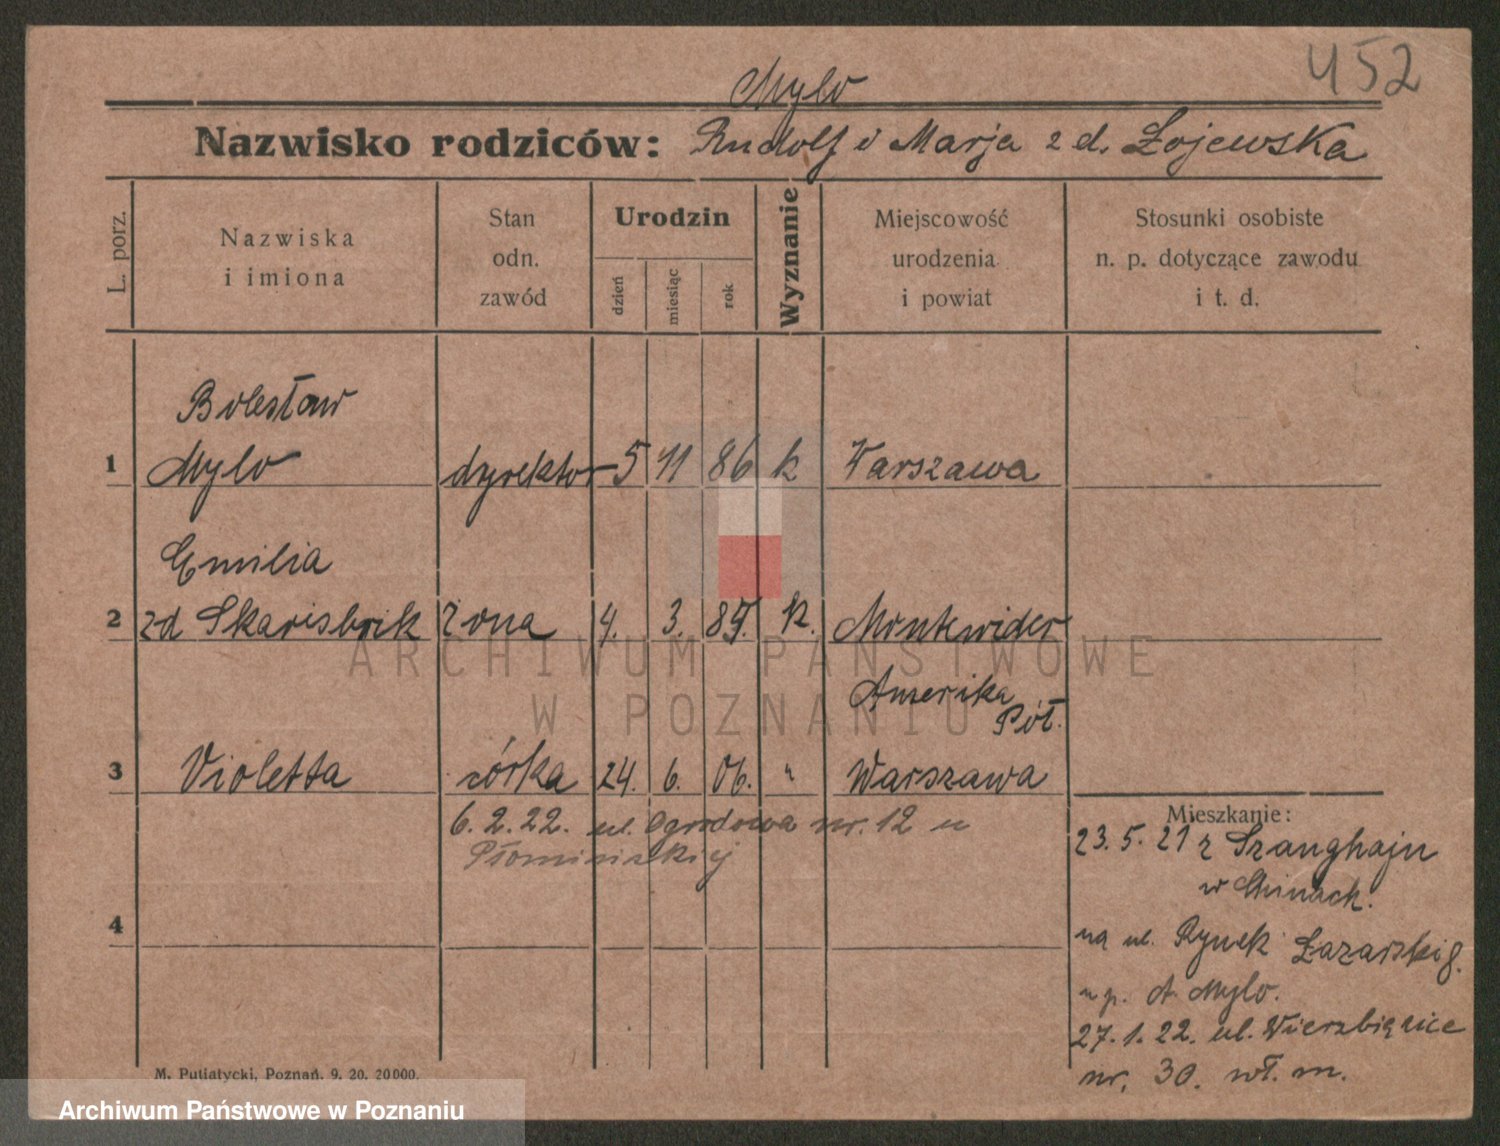 452
Mylo
Nazwisko rodziców: Rudolf i Marja z d. Łojewska
L. porz.
Nazwiska i imiona
Stan odn. zawód
Urodzin
dzień
miesiąc
rok
Wyznanie
Miejscowość urodzenia i powiat
Stosunki osobiste n. p. dotyczące zawodu i t. d.
Bolesław
1 Mylo dyrektor 5 11 86 k Warszawa
Emilia
2 zd Skarisbrik żona 4. 3. k. Montewideo
Amerika
Półł.
3 Violetta córka 24. 6. 06. " Warszawa
6.2.22. ul. Ogrodowa nr. 12 u
Mieszkanie:
23.5.21 z Szanghaju
w Chinach.
4
na ul. Rynek Łazarski 8.
u p. A. Mylo.
27.1.22. ul. Wierzbięcice
nr. 30. wł. m.
M. Putiatycki, Poznań. 9. 20. 20000.
ARCHIWUM PAŃSTWOWE
W POZNANIU
Archiwum Państwowe w Poznaniu